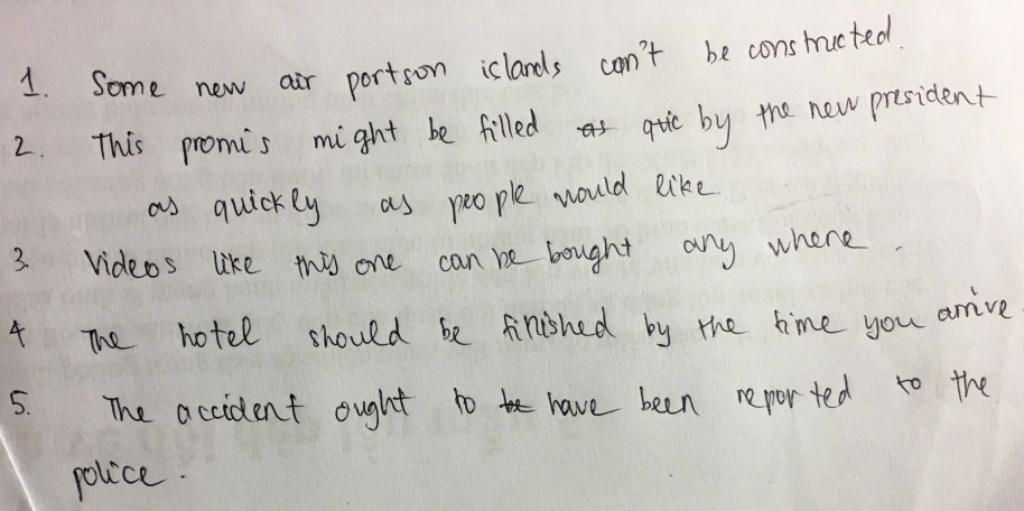 1. Some new air portson iclands can't be constructed.
2. This promis might be filled as quic by the new president
as quickly as people would like.
3. Videos like this one can be bought any where
4 The hotel should be finished by the time you arrive.
5. The accident ought to be have been reported to the
police.